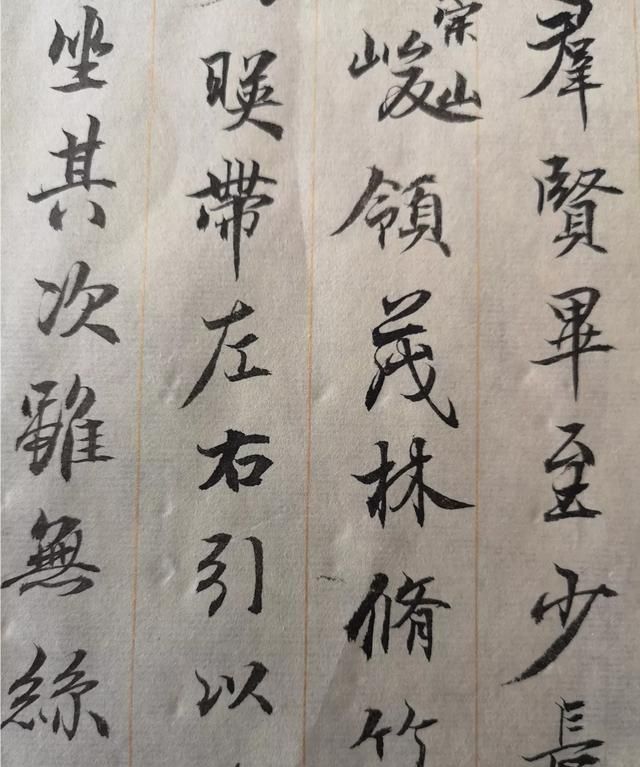 羣賢畢至少長
崇山峻領茂林脩竹
暎帶左右引以
坐其次雖無絲